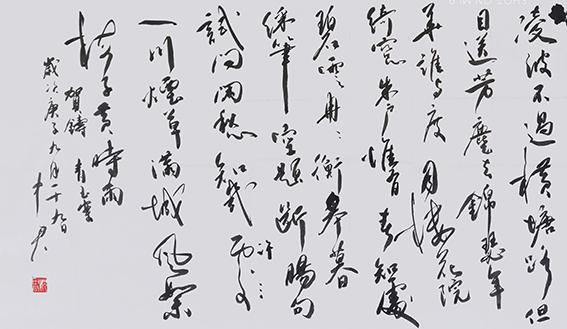 凌波不過橫塘路但
目送芳塵去錦瑟年
華誰與度月樓花院
綺窗朱戶惟有春知處
碧雲冉冉蘅皋暮
綵筆空題斷腸句
試問閑愁知幾許
一川煙草滿城風絮
梅子黃時雨
賀鑄 青玉案
歲次庚子九月